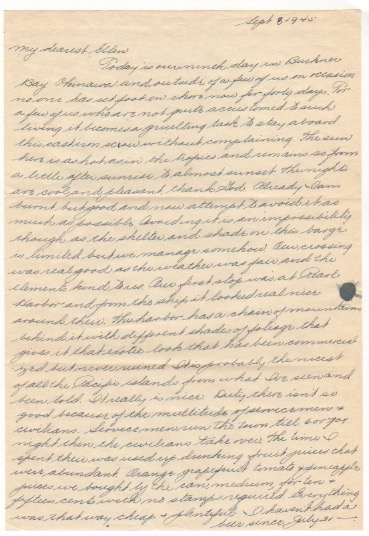 Sept 3 1945
My dearest Ellen
Today is our ninth day in Buckner
Bay Okinawa and outside of a few of us on occasion
no one has set foot on shore now for forty days. For
a few of us who are not quite accustomed to such
living it becomes a gruelling task to stay aboard
this cast iron scow without complaining. The sun
here is as hot as in the tropics and remains so from
a little after sunrise to almost sunset the nights
are cool and pleasant thank God. Already I am
burnt but good and now attempt to avoid it as
much as possible. Avoiding it is an impossibility
though as the shelter and shade on this barge
is limited but we manage somehow. Our crossing
was real good as the weather was fair and the
elements kind to us. Our first stop was at Pearl
Harbor and from the ship it looked real nice
around there. The harbor has a chain of mountains
behind it with different shades of foliage that
gives it that exotic look that has been commercial
ized but never ruined. It is probably the nicest
of all the Pacific islands from what I've seen and
been told. It really is nice. Duty there isn't so
good because of the multitude of servicemen &
civilians. Servicemen run the town till
night then the civilians take over. The time I
spent there was used up drinking fruit juices that
were abundant. Orange grapefruit tomato & pineapple
juices we bought by the can, medium, for ten &
fifteen cents with no stamps required. Everything
was that way, cheap & plentiful. I haven't had a
beer since July 21 —